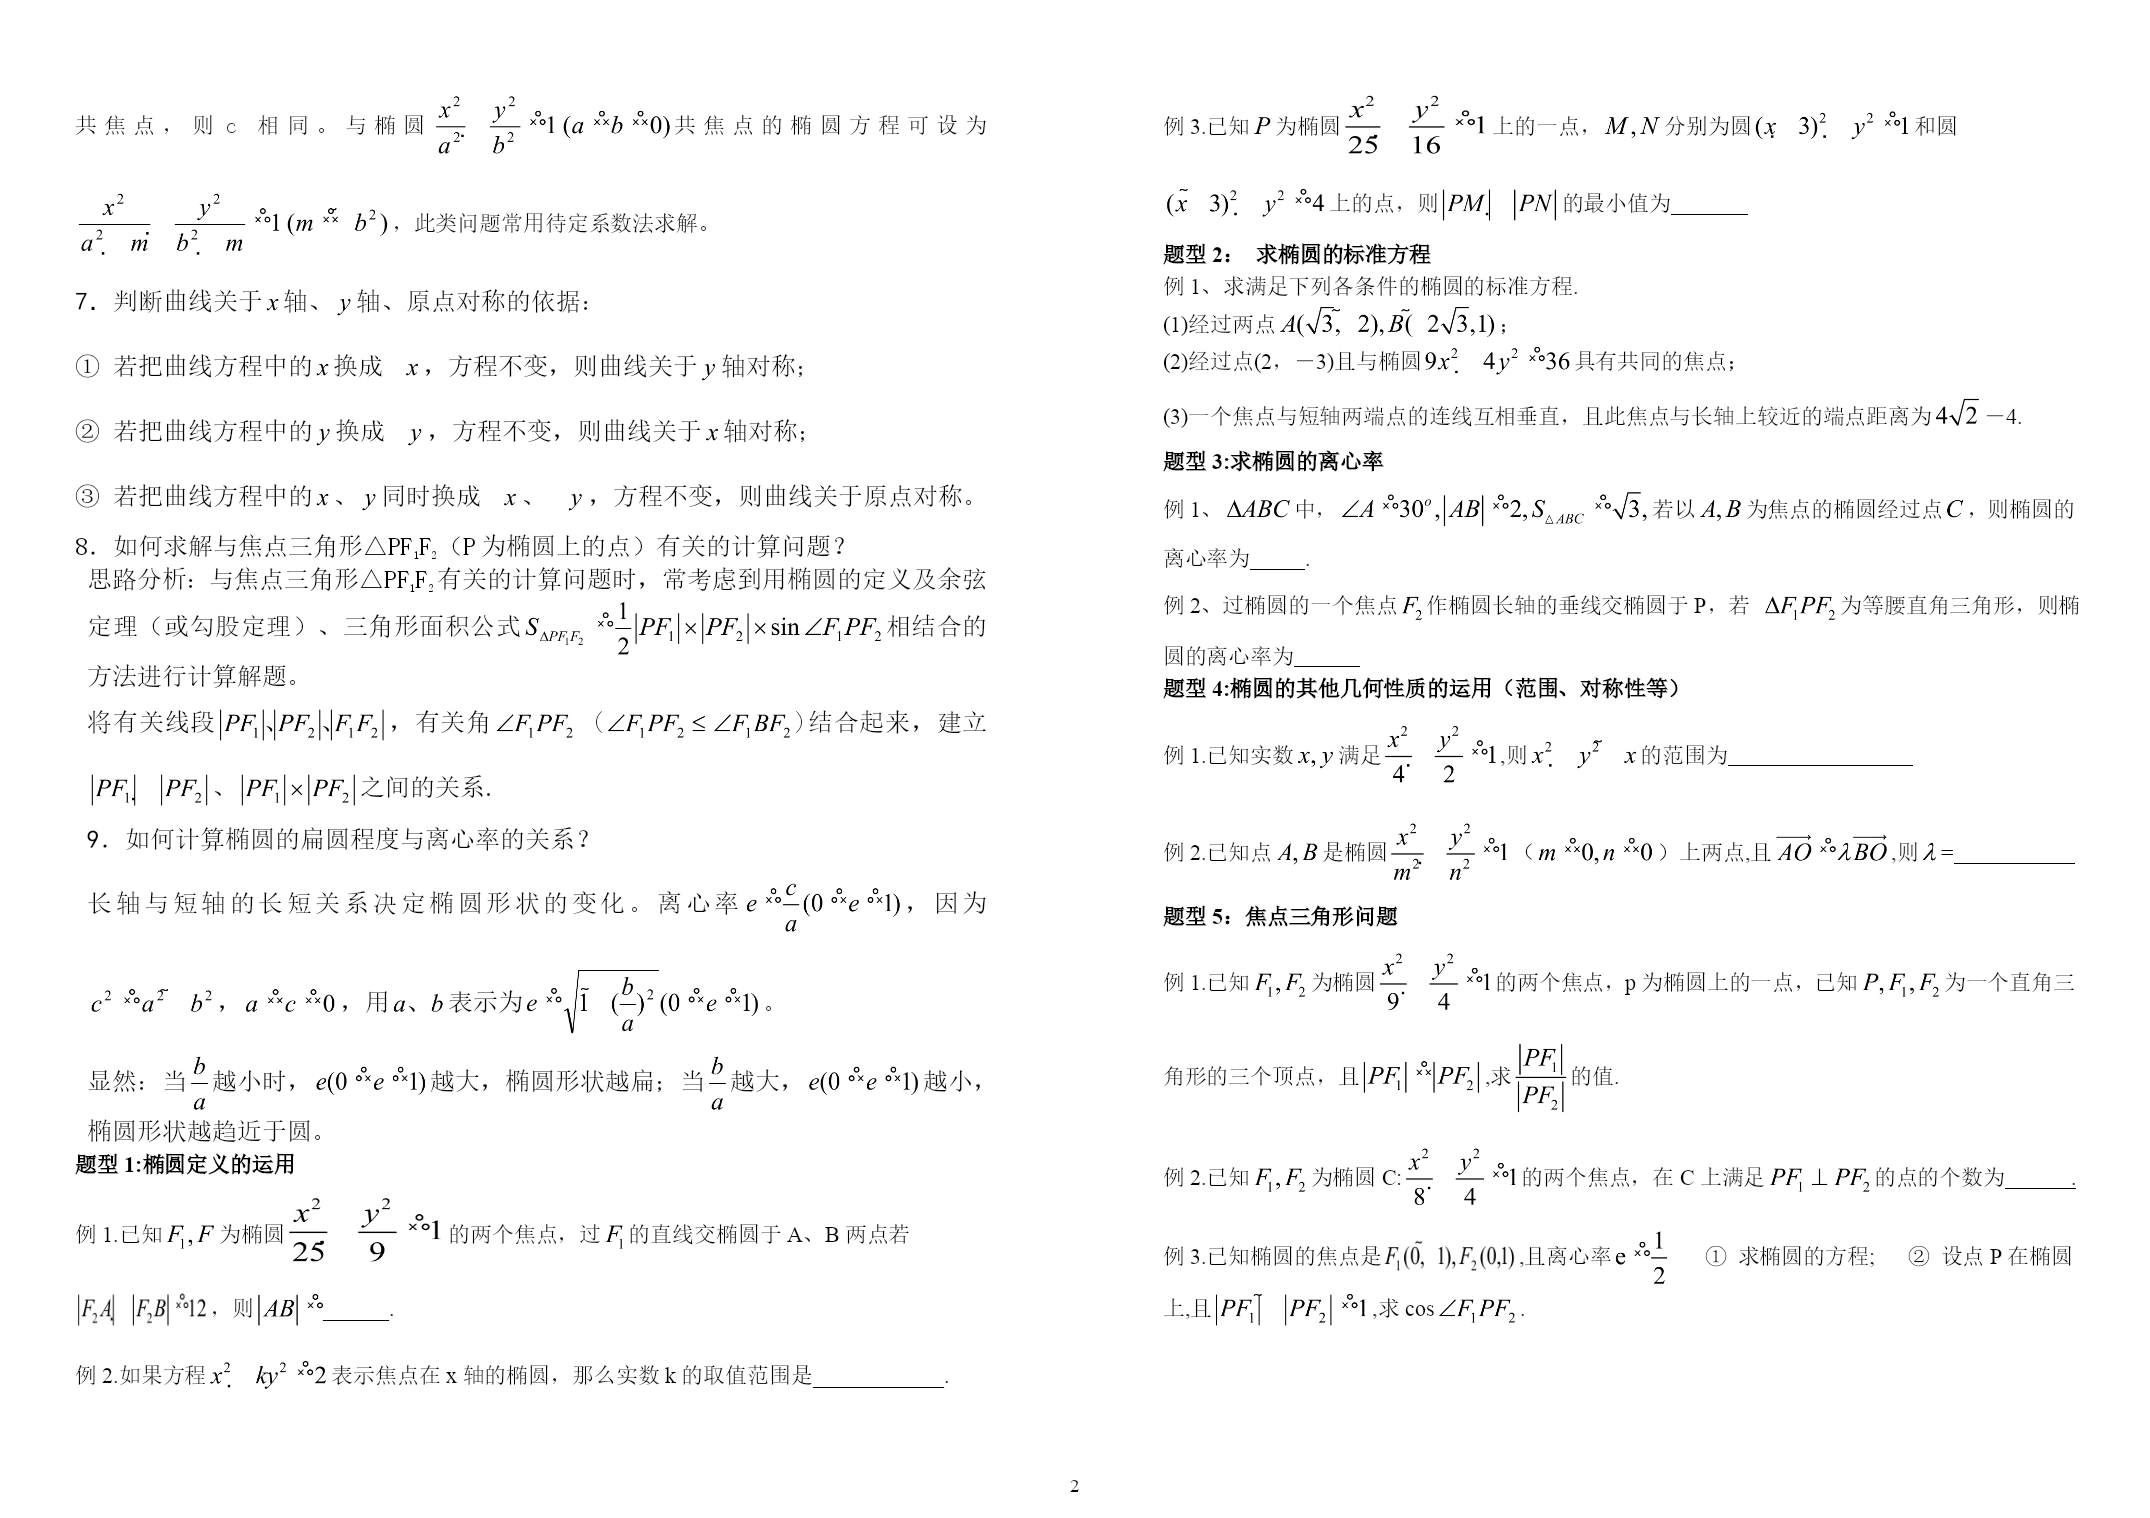 共焦点，则c 相同。与椭圆 x²/a² + y²/b² = 1 (a > b > 0) 共焦点的椭圆方程可设为
x²/(a² + m) + y²/(b² + m) = 1 (m > -b²)，此类问题常用待定系数法求解。
7．判断曲线关于 x 轴、y 轴、原点对称的依据：
① 若把曲线方程中的 x 换成 x，方程不变，则曲线关于 y 轴对称；
② 若把曲线方程中的 y 换成 y，方程不变，则曲线关于 x 轴对称；
③ 若把曲线方程中的 x、y 同时换成 x、 y，方程不变，则曲线关于原点对称。
8．如何求解与焦点三角形△PF₁F₂（P 为椭圆上的点）有关的计算问题？
思路分析：与焦点三角形△PF₁F₂有关的计算问题时，常考虑到用椭圆的定义及余弦
定理（或勾股定理）、三角形面积公式 S_ΔPF₁F₂ = 1/2 |PF₁|×|PF₂|×sin∠F₁PF₂ 相结合的
方法进行计算解题。
将有关线段|PF₁|、|PF₂|、|F₁F₂|，有关角∠F₁PF₂（∠F₁PF₂ ≤ ∠F₁BF₂）结合起来，建立
|PF₁| + |PF₂|、|PF₁|×|PF₂| 之间的关系.
9．如何计算椭圆的扁圆程度与离心率的关系？
长轴与短轴的长短关系决定椭圆形状的变化。离心率 e = c/a (0 < e < 1)，因为
c² = a² - b²，a > c > 0，用 a、b 表示为 e = √(1 - (b/a)²) (0 < e < 1)。
显然：当 b/a 越小时，e(0 < e < 1) 越大，椭圆形状越扁；当 b/a 越大，e(0 < e < 1) 越小，
椭圆形状越趋近于圆。
题型 1:椭圆定义的运用
例 1.已知 F₁, F 为椭圆 x²/25 + y²/9 = 1 的两个焦点，过 F₁ 的直线交椭圆于 A、B 两点若
|F₂A| + |F₂B| = 12，则|AB| = ______.
例 2.如果方程 x² + ky² = 2 表示焦点在 x 轴的椭圆，那么实数 k 的取值范围是____________.
例 3.已知 P 为椭圆 x²/25 + y²/16 = 1 上的一点，M, N 分别为圆 (x + 3)² + y² = 1 和圆
(x - 3)² + y² = 4 上的点，则|PM| + |PN| 的最小值为_______
题型 2： 求椭圆的标准方程
例 1、求满足下列各条件的椭圆的标准方程.
(1)经过两点 A(√3, -2), B(-2√3,1)；
(2)经过点(2，－3)且与椭圆 9x² + 4y² = 36 具有共同的焦点；
(3)一个焦点与短轴两端点的连线互相垂直，且此焦点与长轴上较近的端点距离为 4√2 －4.
题型 3:求椭圆的离心率
例 1、ΔABC 中，∠A = 30°, |AB| = 2, S_△ABC = √3, 若以 A, B 为焦点的椭圆经过点 C，则椭圆的
离心率为_____.
例 2、过椭圆的一个焦点 F₂ 作椭圆长轴的垂线交椭圆于 P，若 ΔF₁PF₂ 为等腰直角三角形，则椭
圆的离心率为______
题型 4:椭圆的其他几何性质的运用（范围、对称性等）
例 1.已知实数 x, y 满足 x²/4 + y²/2 = 1,则 x² + y² - x 的范围为_________________
例 2.已知点 A, B 是椭圆 x²/m² + y²/n² = 1（m > 0, n > 0）上两点,且 AO = λBO,则 λ =___________
题型 5：焦点三角形问题
例 1.已知 F₁, F₂ 为椭圆 x²/9 + y²/4 = 1 的两个焦点，p 为椭圆上的一点，已知 P, F₁, F₂ 为一个直角三
角形的三个顶点，且|PF₁| > |PF₂|,求 |PF₁|/|PF₂| 的值.
例 2.已知 F₁, F₂ 为椭圆 C: x²/8 + y²/4 = 1 的两个焦点，在 C 上满足 PF₁ ⊥ PF₂ 的点的个数为______.
例 3.已知椭圆的焦点是 F₁(0, -1), F₂(0,1),且离心率 e = 1/2 ① 求椭圆的方程; ② 设点 P 在椭圆
上,且|PF₁| - |PF₂| = 1,求 cos∠F₁PF₂.
2